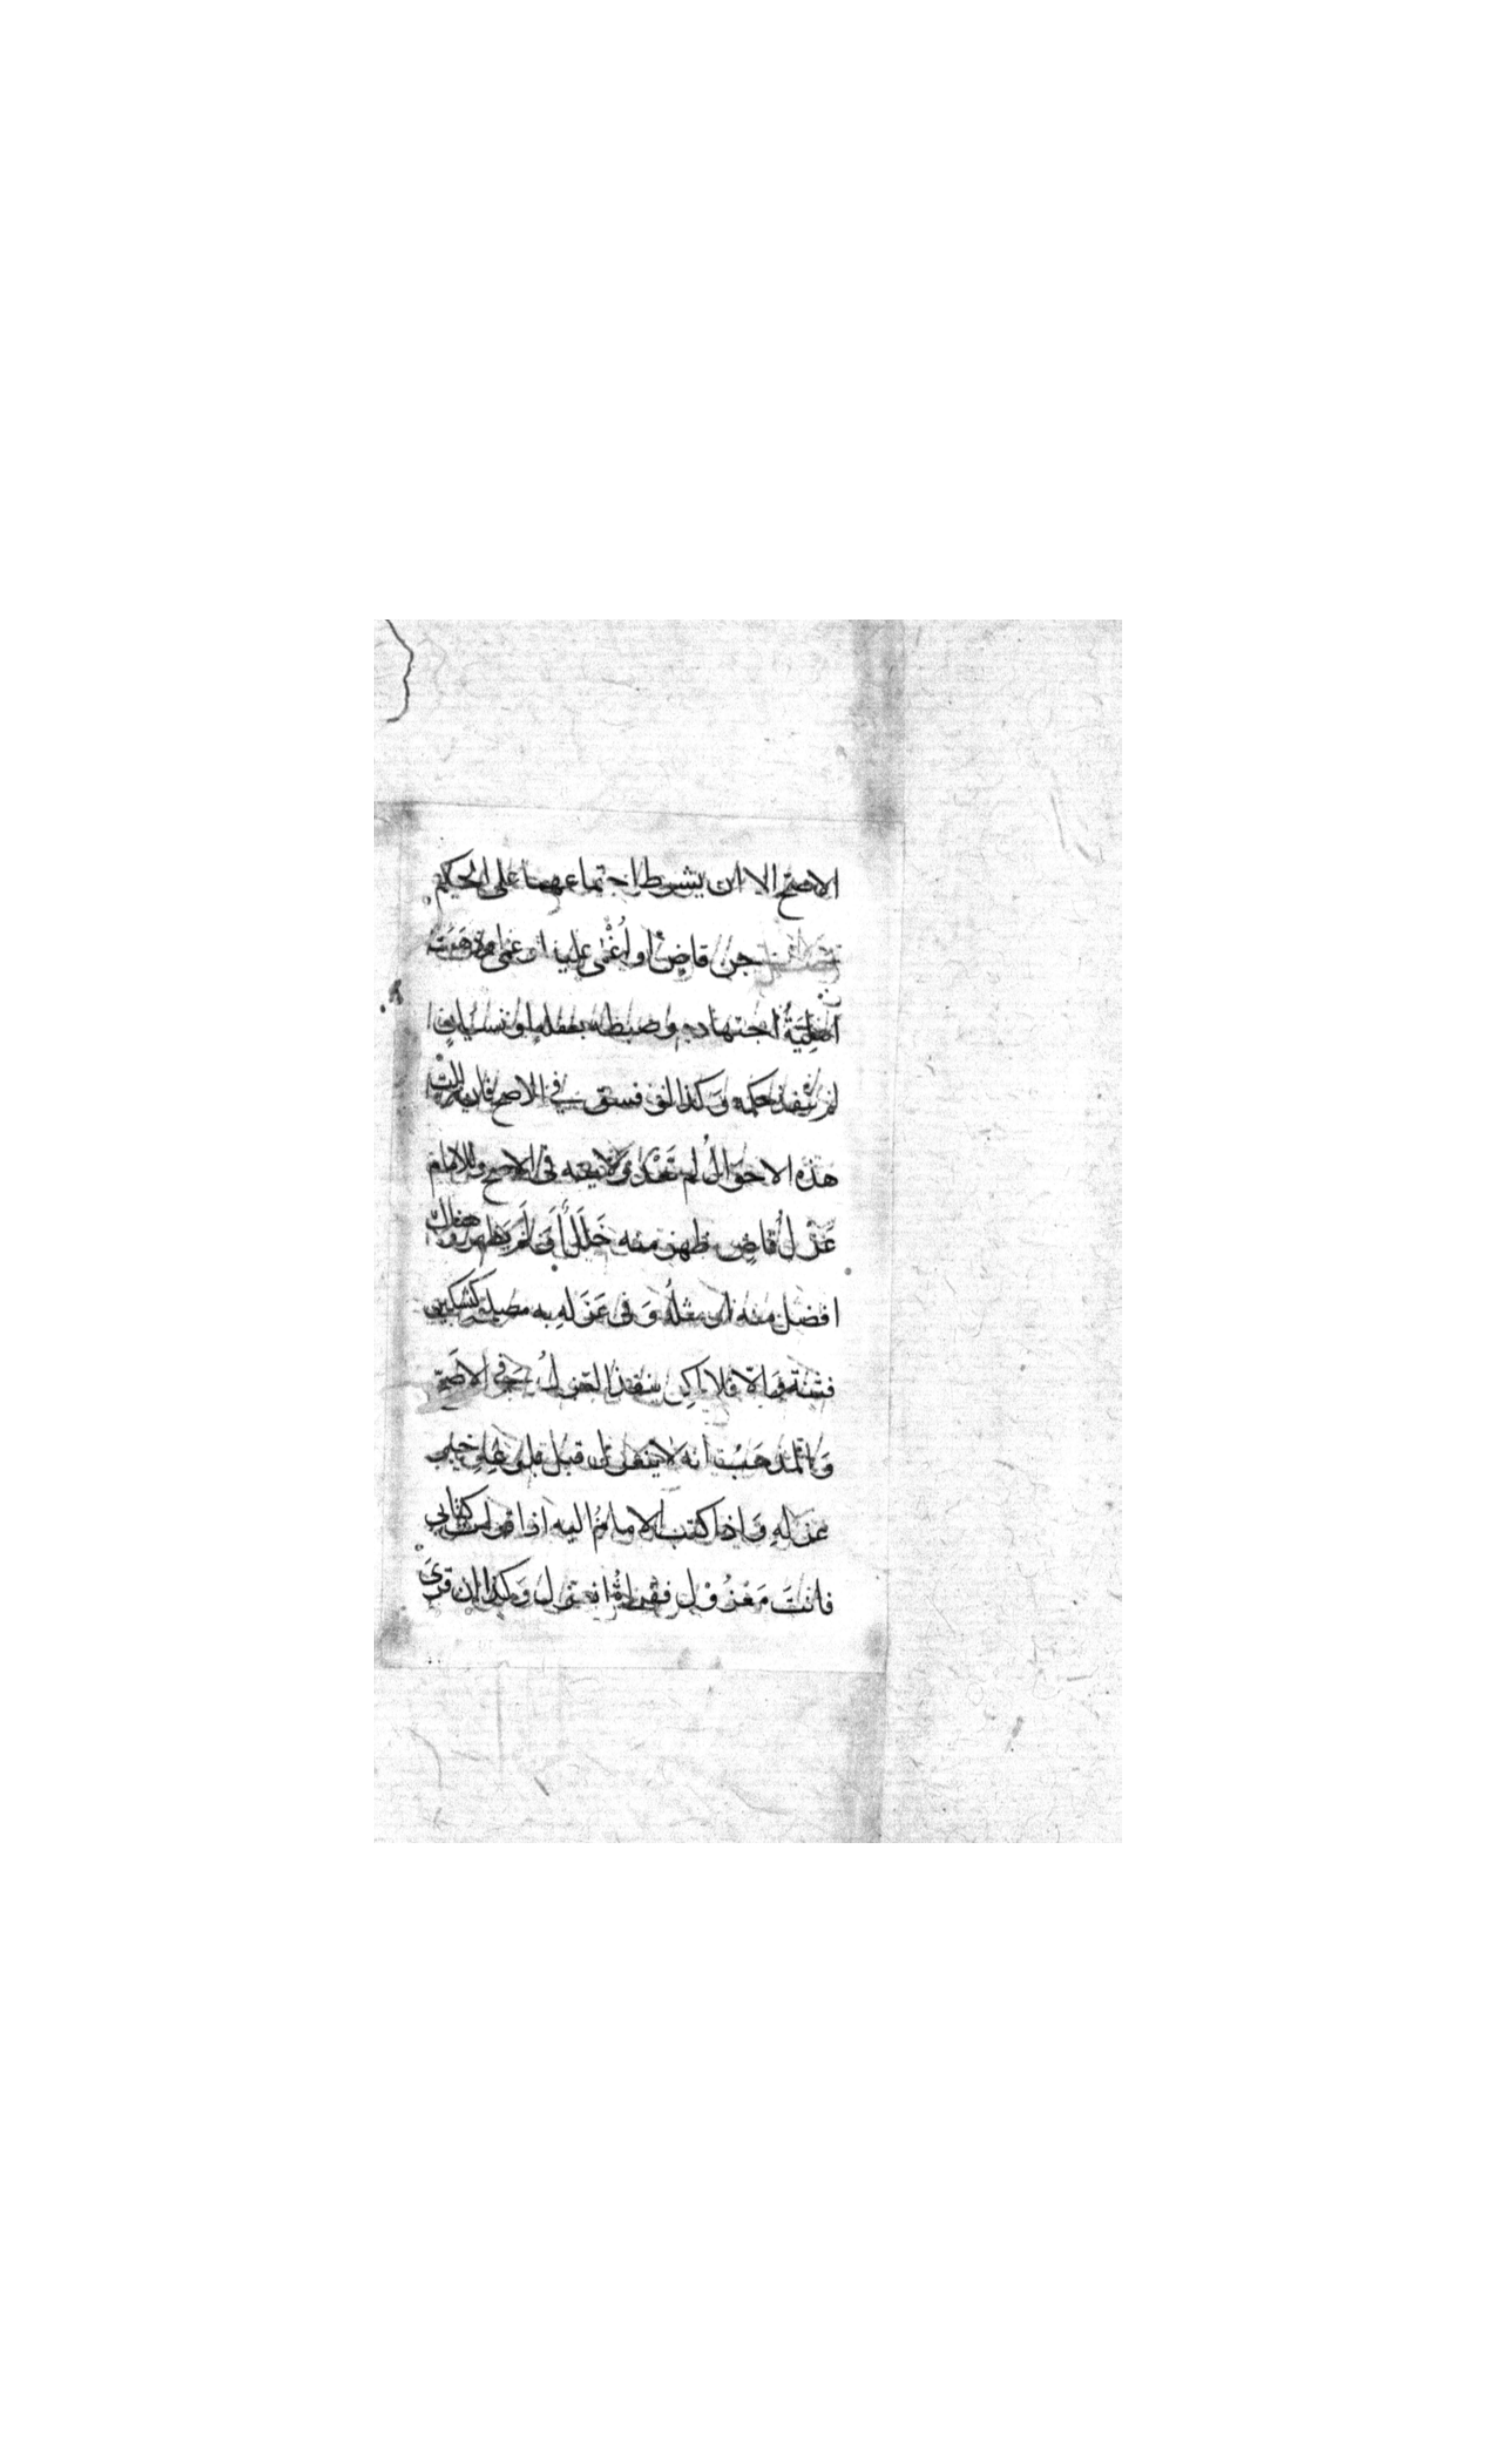 الاصح الا ان يشرط اجتماعهما على الحكم
فصل جن قاض او اغمى عليه او عمى او ذهبت
اهلية اجتهاده وضبطه بغفلة او نسيان
لم ينفذ حكمه وكذا لو فسق في الاصح فان زالت
هذه الاحوال لم تعد ولايته فى الاصح وللامام
عزل قاض ظهر منه خلل أو لم يظهر وهناك
افضل منه او مثله وفى عزله به مصلحة كتسكين
فتنة والا فلا لكن ينفذ العزل في الاصح
والمذهب انه لا ينعزل قبل بلوغه خبر
عزله واذا كتب الامام اليه اذا قرات كتابي
فانت معزول فقراه انعزل وكذا ان قرئ